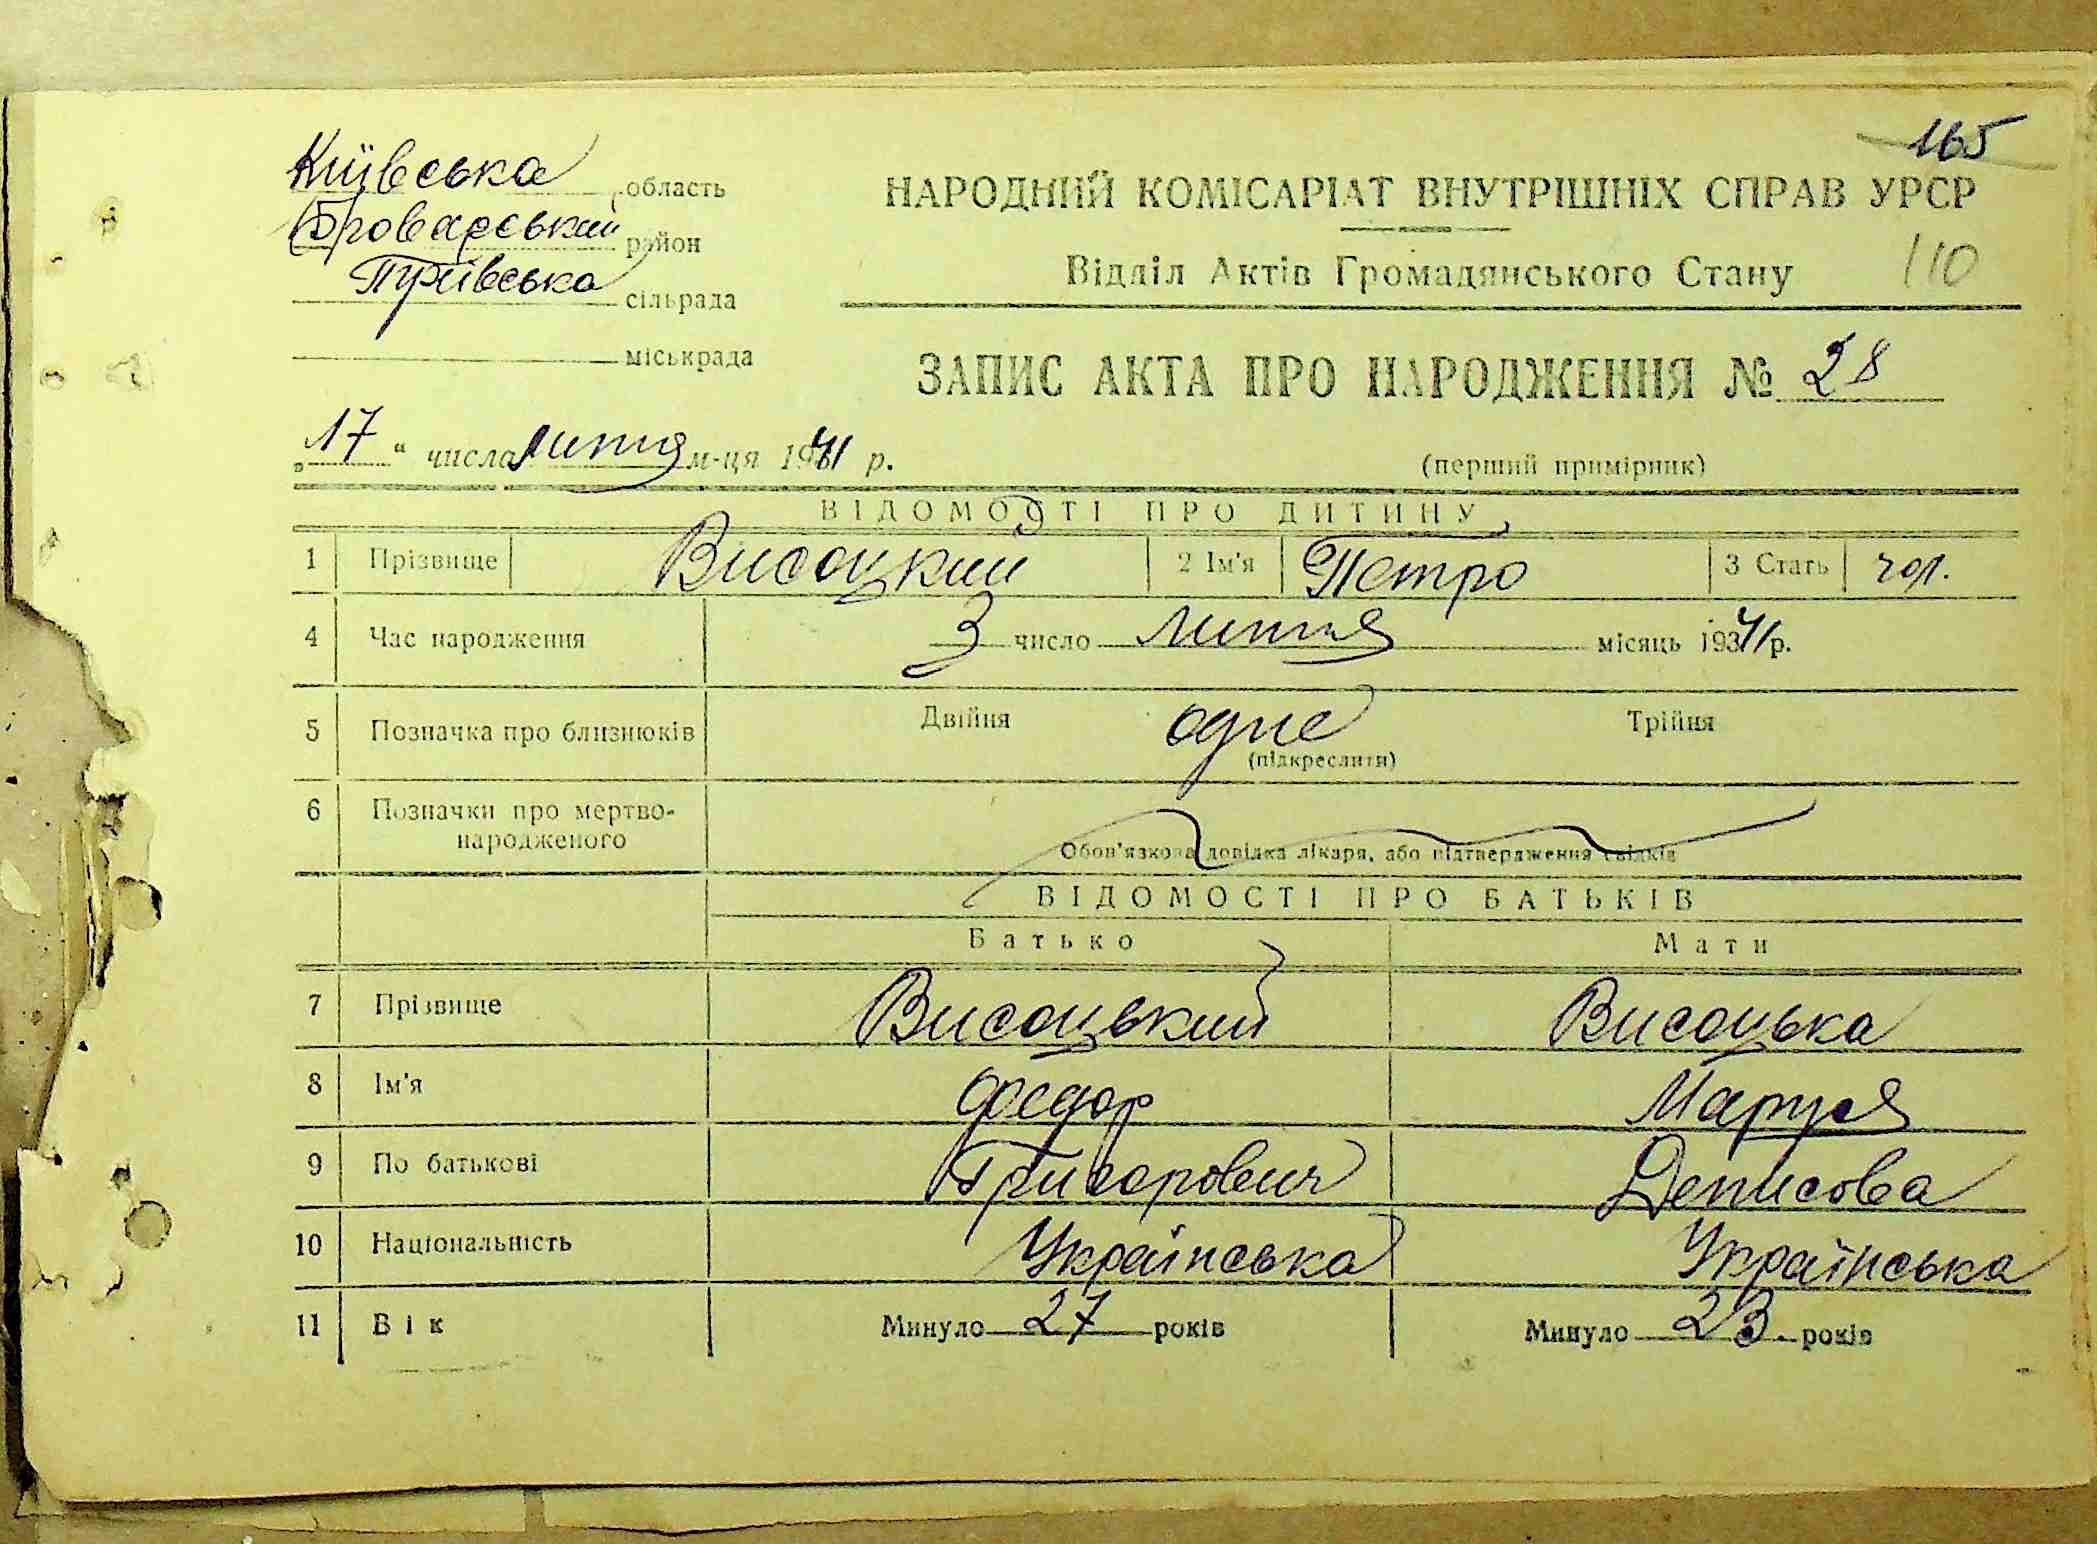 165
Київська область
НАРОДНИЙ КОМІСАРІАТ ВНУТРІШНІХ СПРАВ УРСР
Броварський район
Відділ Актів Громадянського Стану 110
Пухівська сільрада
міськрада
ЗАПИС АКТА ПРО НАРОДЖЕННЯ № 28
„17" числа лютня м-ця 1941 р.
(перший примірник)
ВІДОМОСТІ ПРО ДИТИНУ
1 Прізвище Висоцкий 2 Ім'я Петро 3 Стать чол.
4 Час народження 3 число лютня місяць 1941 р.
5 Позначка про близнюків Двійня одне Трійня
(підкреслити)
6 Позначки про мертво-
народженого
Обов'язкова довідка лікаря, або підтвердження свідків
ВІДОМОСТІ ПРО БАТЬКІВ
Батько Мати
7 Прізвище Висоцький Висоцька
8 Ім'я Федор Маруся
9 По батькові Григорович Денисова
10 Національність Українська Українська
11 Вік Минуло 27 років Минуло 23 років